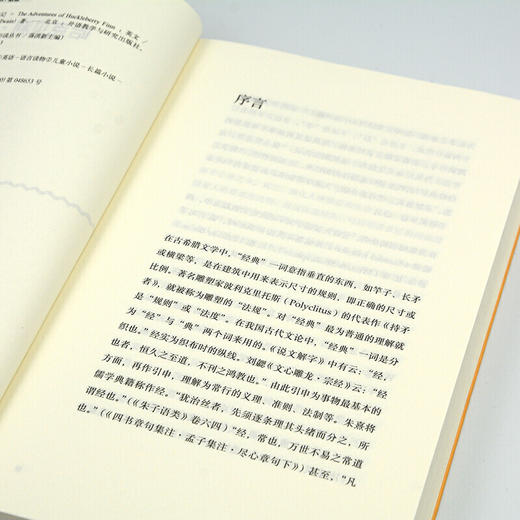 记 = The Adventures of Huckleberry Finn : 英文 /
Twain) 著. — 北京 : 外语教学与研究出版社,
读丛书 / 蒋洪新主编)
①英语－语言读物②儿童小说－长篇小说－
第 048653 号
序言
在古希腊文学中，“经典”一词意指垂直的东西，如竿子、长矛
或横梁等，是在建筑中用来表示尺寸的规则，即正确的尺寸或
比例。著名雕塑家波利克里托斯（Polyclitus）的代表作《持矛
者》，就被称为雕塑的“法规”。对“经典”最为普通的理解就
是“规则”或“法度”。在我国古代文论中，“经典”一词是分
为“经”与“典”两个词来用的。《说文解字》中有云：“经，
织也。”经实为织布时的纵线。刘勰《文心雕龙·宗经》云：“经
也者，恒久之至道，不刊之鸿教也。”由此引申为事物最基本的
方面，再作引申，理解为常行的义理、准则、法制等。朱熹将
儒学典籍称作经。“犹治丝者，先须逐条理其头绪而分之，所
谓经也。”（《朱子语类》卷六四）“经，常也，万世不易之常道
也。”（《四书章句集注·孟子集注·尽心章句下》）甚至，“凡